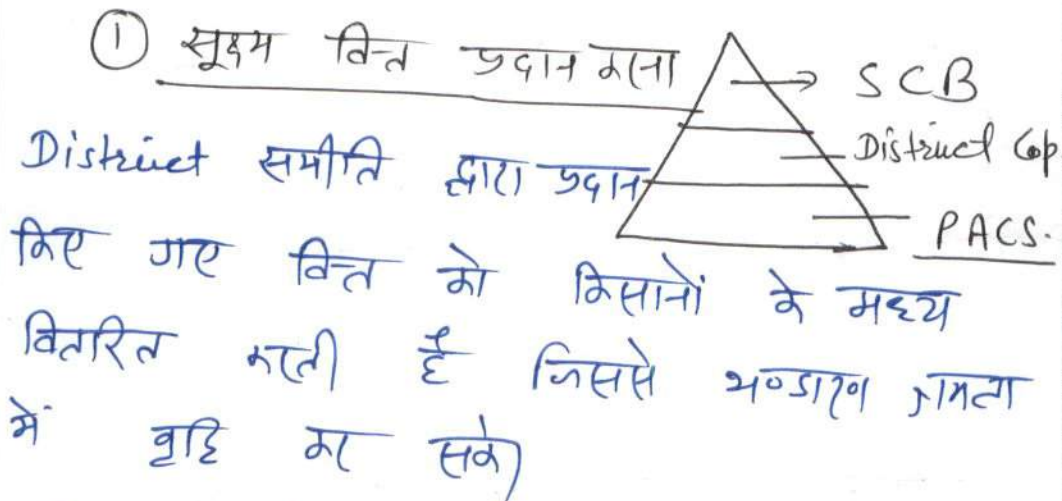 ① सूक्ष्म वित्त प्रदान करना
SCB
District Cop
PACS.
District समीति द्वारा प्रदान
किए गए वित्त को किसानों के मध्य
वितरित करती है जिससे भण्डारण क्षमता
में वृद्धि कर सके